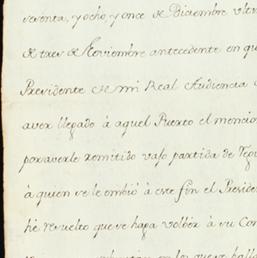 setenta, y ocho, y once de Diciembre
de tres de Noviembre antecedente en que
Presidente de mi Real Audiencia
aver llegado á aquel Puerto el mencio
por averle remitido vajo partida de
á quien se le embió á este fin el Presiden
hé resuelto que se haga volbér á su Con